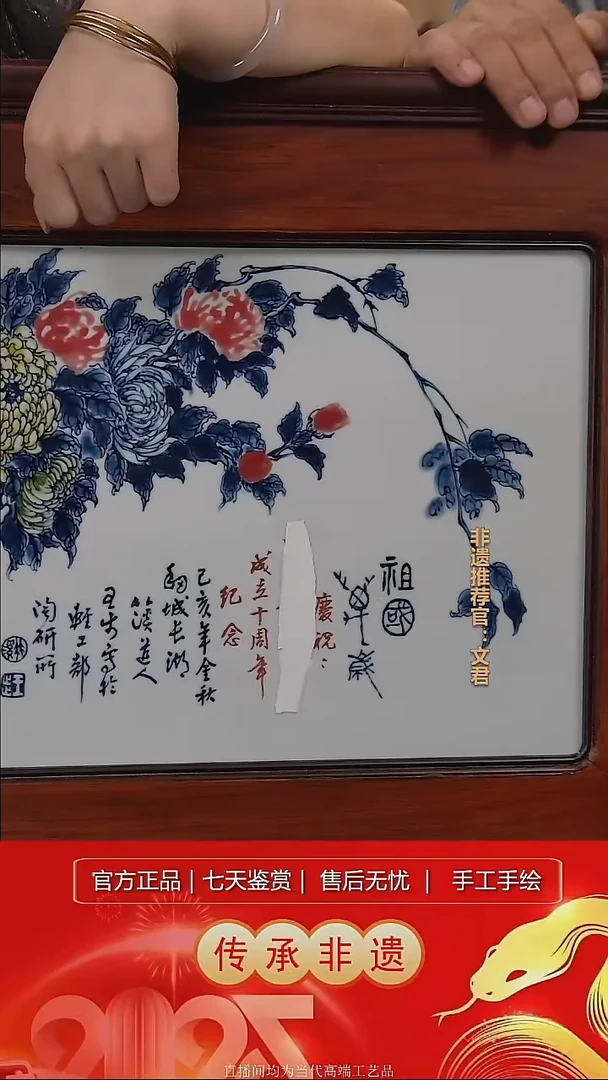 祖國
萬歲
慶祝：
成立十周年
纪念
己亥年金秋
长湖
道人
王步写於
輕工部
陶研所
非遗推荐官：文君
官方正品 | 七天鉴赏 | 售后无忧 | 手工手绘
传承非遗
2025
直播间均为当代高端工艺品